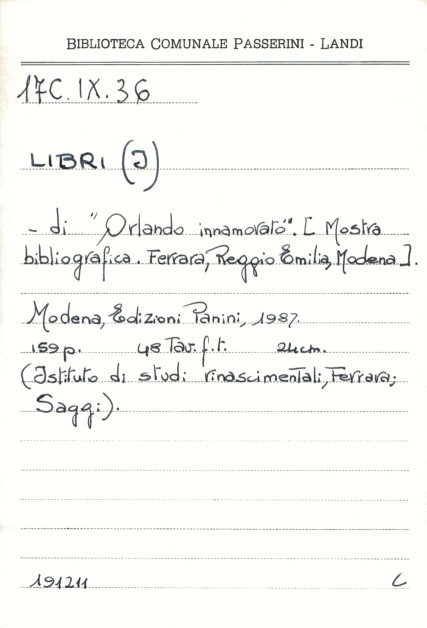 BIBLIOTECA COMUNALE PASSERINI - LANDI
17C.IX.36
LIBRI (I)
- di "Orlando innamorato". [ Mostra
bibliografica. Ferrara, Reggio Emilia, Modena ].
Modena, Edizioni Panini, 1987.
159 p. 48 Tav. f.t. 24 cm.
(Istituto di studi rinascimentali, Ferrara;
Saggi).
191211 C